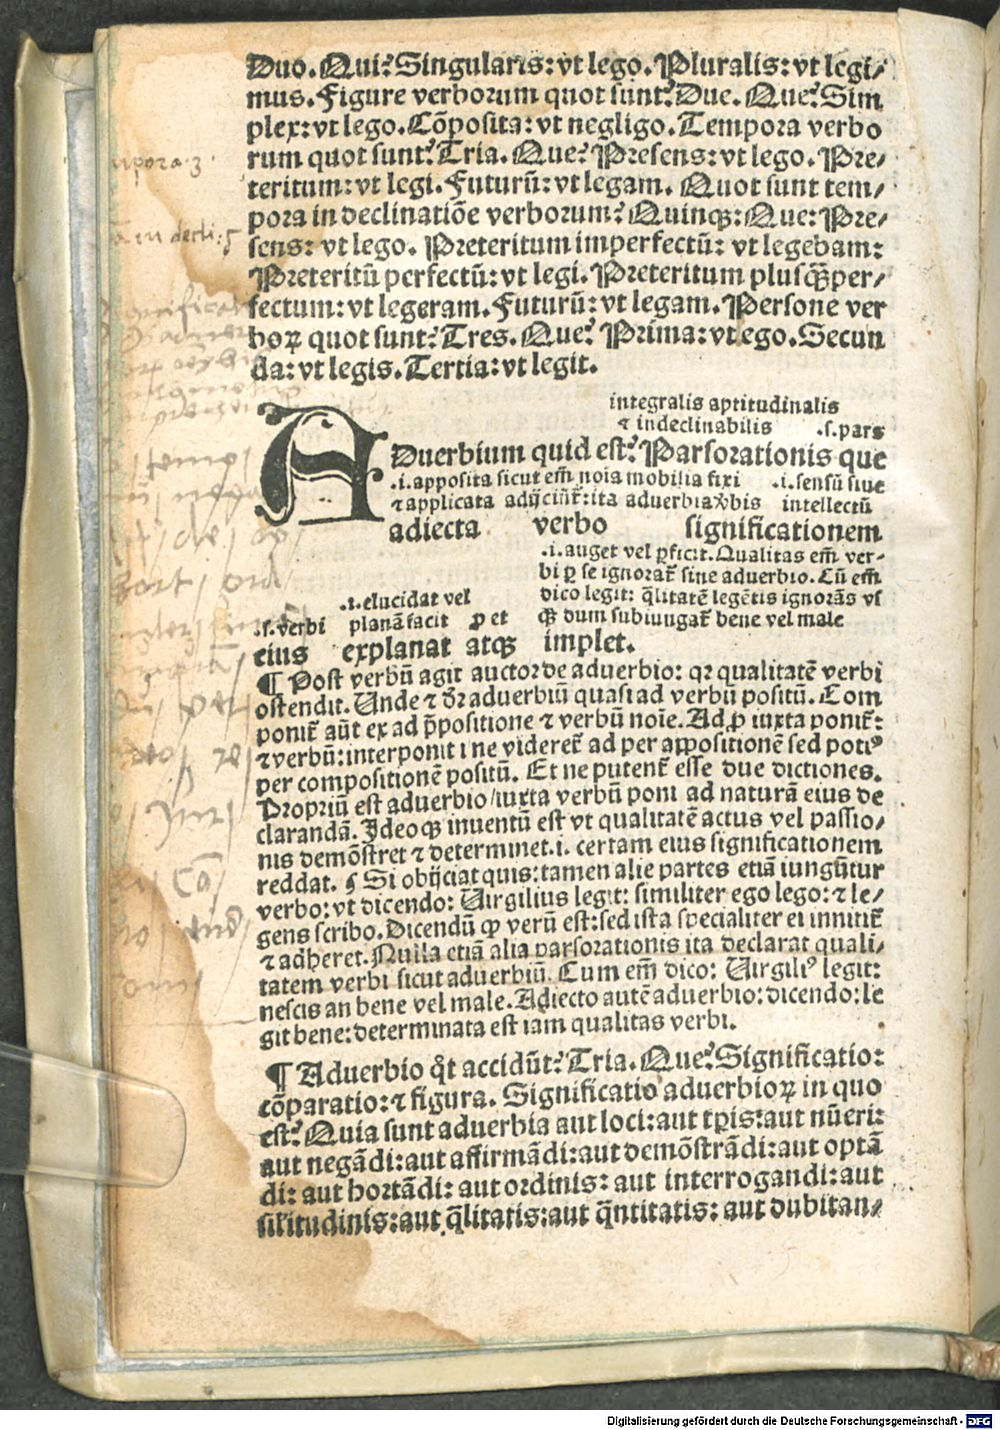 Duo. Qui? Singularis: vt lego. Pluralis: vt legi⸗
mus. Figure verborum quot sunt? Due. Que? Sim
plex: vt lego. Cōposita: vt negligo. Tempora verbo
rum quot sunt? Tria. Que? Presens: vt lego. Pre⸗
teritum: vt legi. Futurū: vt legam. Quot sunt tem⸗
pora in declinatiōe verborum? Quinqꝫ: Que: Pre⸗
sens: vt lego. Preteritum imperfectū: vt legebam:
Preteritū perfectū: vt legi. Preteritum plusq̄ꝫper⸗
fectum: vt legeram. Futurū: vt legam. Persone ver
boꝝ quot sunt? Tres. Que? Prima: vt ego. Secun
da: vt legis. Tertia: vt legit.
integralis aptitudinalis
⁊ indeclinabilis .s. pars
ADuerbium quid est? Parsorationis que
.i. apposita sicut em̄ noīa mobilia fixi .i. sensū siue
⁊ applicata adijciūt̄: ita aduerbia v̄bis intellectū
adiecta verbo significationem
.i. auget vel ꝑficit. Qualitas em̄ ver-
bi ꝑ se ignorat̄ sine aduerbio. Cū em̄
.i. elucidat vel dico legit: q̄litatē legētis ignorās vs
.s. verbi planā facit ꝓ et qꝫ dum subiungat̄ bene vel male
eius explanat atqꝫ implet.
¶ Post verbū agit auctor de aduerbio: qꝛ qualitatē verbi
ostendit. Unde ⁊ dr̄ aduerbiū quasi ad verbū positū. Com
ponit̄ aūt ex ad p̄positione ⁊ verbū noīe. Ad ꝓ iuxta ponit̄:
⁊ verbū: interponit̄ ne videret̄ ad per appositionē sed potiꝰ
per compositionē positū. Et ne putent̄ esse due dictiones.
Propriū est aduerbio/iuxta verbū poni ad naturā eius de
clarandā. Ideoqꝫ inuentū est vt qualitatē actus vel passio⸗
nis demōstret ⁊ determinet .i. certam eius significationem
reddat. ¶ Si obijciat quis: tamen alie partes etiā iungūtur
verbo: vt dicendo: Uirgilius legit: similiter ego lego: ⁊ le⸗
gens scribo. Dicendū ꝙ verū est: sed ista specialiter ei innitit̄
⁊ adheret. Nulla etiā alia parsorationis ita declarat quali⸗
tatem verbi sicut aduerbiū. Cum em̄ dico: Uirgiliꝰ legit:
nescis an bene vel male. Adiecto autē aduerbio: dicendo: le
git bene: determinata est iam qualitas verbi.
¶ Aduerbio q̊t accidūt? Tria. Que? Significatio:
cōparatio: ⁊ figura. Significatio aduerbioꝝ in quo
est? Quia sunt aduerbia aut loci: aut tꝑis: aut nūeri:
aut negādi: aut affirmādi: aut demōstrādi: aut optā
di: aut hortādi: aut ordinis: aut interrogandi: aut
sil̄itudinis: aut q̄litatis: aut q̄ntitatis: aut dubitan⸗
Digitalisierung gefördert durch die Deutsche Forschungsgemeinschaft - DFG